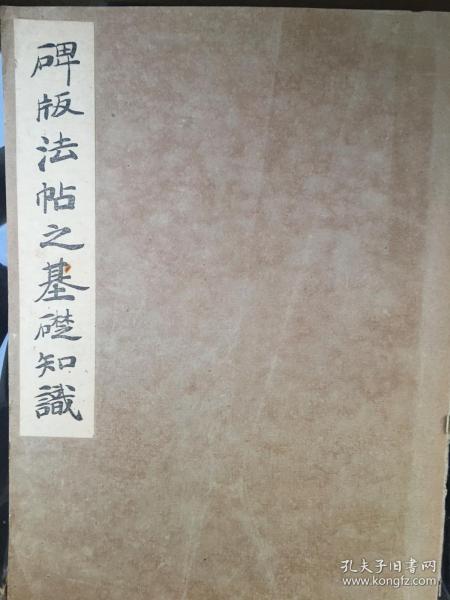 碑版法帖之基礎知識
孔夫子旧书网
www.kongfz.com